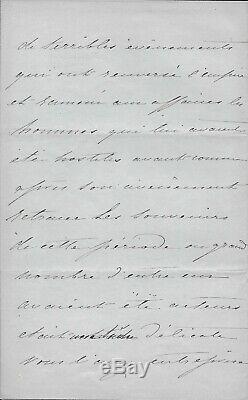 de terribles évènements
qui ont renversé l'empire
et ramené aux affaires les
hommes qui lui avaient
été hostiles avant comme
après son avènement
retracer les souvenirs
de cette période où grand
nombre d'entre eux
avaient été acteurs
était une tâche délicate
vous l'avez entreprise